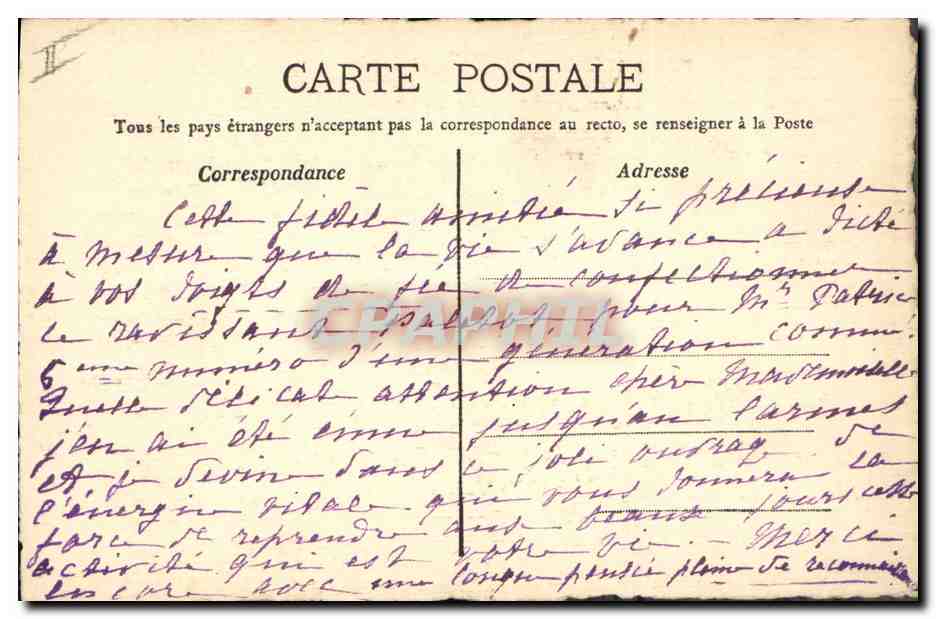 II
CARTE POSTALE
Tous les pays étrangers n'acceptant pas la correspondance au recto, se renseigner à la Poste
Correspondance
Adresse
Cette fidèle amitié si précieuse
à mesure que la vie s'avance a dicté
à vos doigts de fée de confectionner
ce ravissant paletot pour Mr Patrice
6eme numéro d'une génération comme!
Quelle délicate attention chère Mademoiselle
j'en ai été émue jusqu'au larmes
et je devine dans ce joli ouvrage de
l'énergie vitale qui vous donnera la
force de reprendre aux beaux jours cette
activité qui est votre vie. - Merci
encore avec une longue pensée pleine de reconnaissance
CPAPHIL